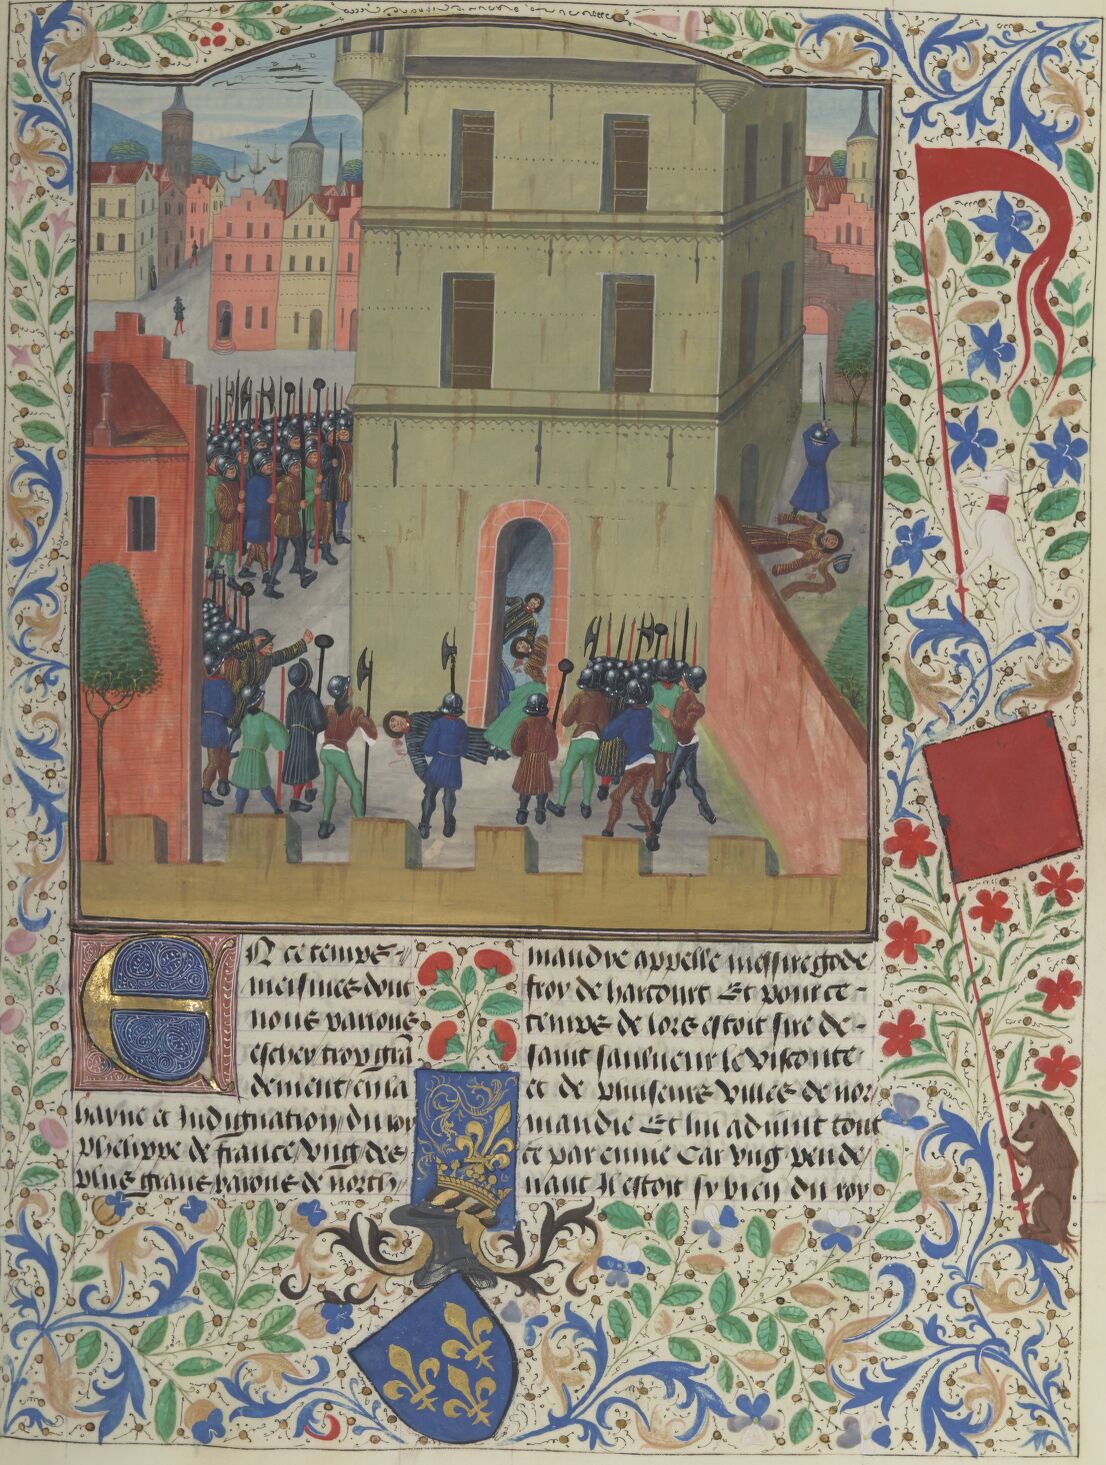 En ce temps
meismes dont
nous parlons
eschey trop grã
dement / en la
hayne et Indignation / du roy
phelippe de france / vng des
plus grans barons de norm̃
mandie appelle messire gode
froy de harcourt Et pour ce
temps de lors estoit sire de
saint sauueur le visconte
et de pluiseurs villes de nor
mandie Et lui aduint tout
ce par enuie Car vng peu de
uant Il estoit sy bien du roy